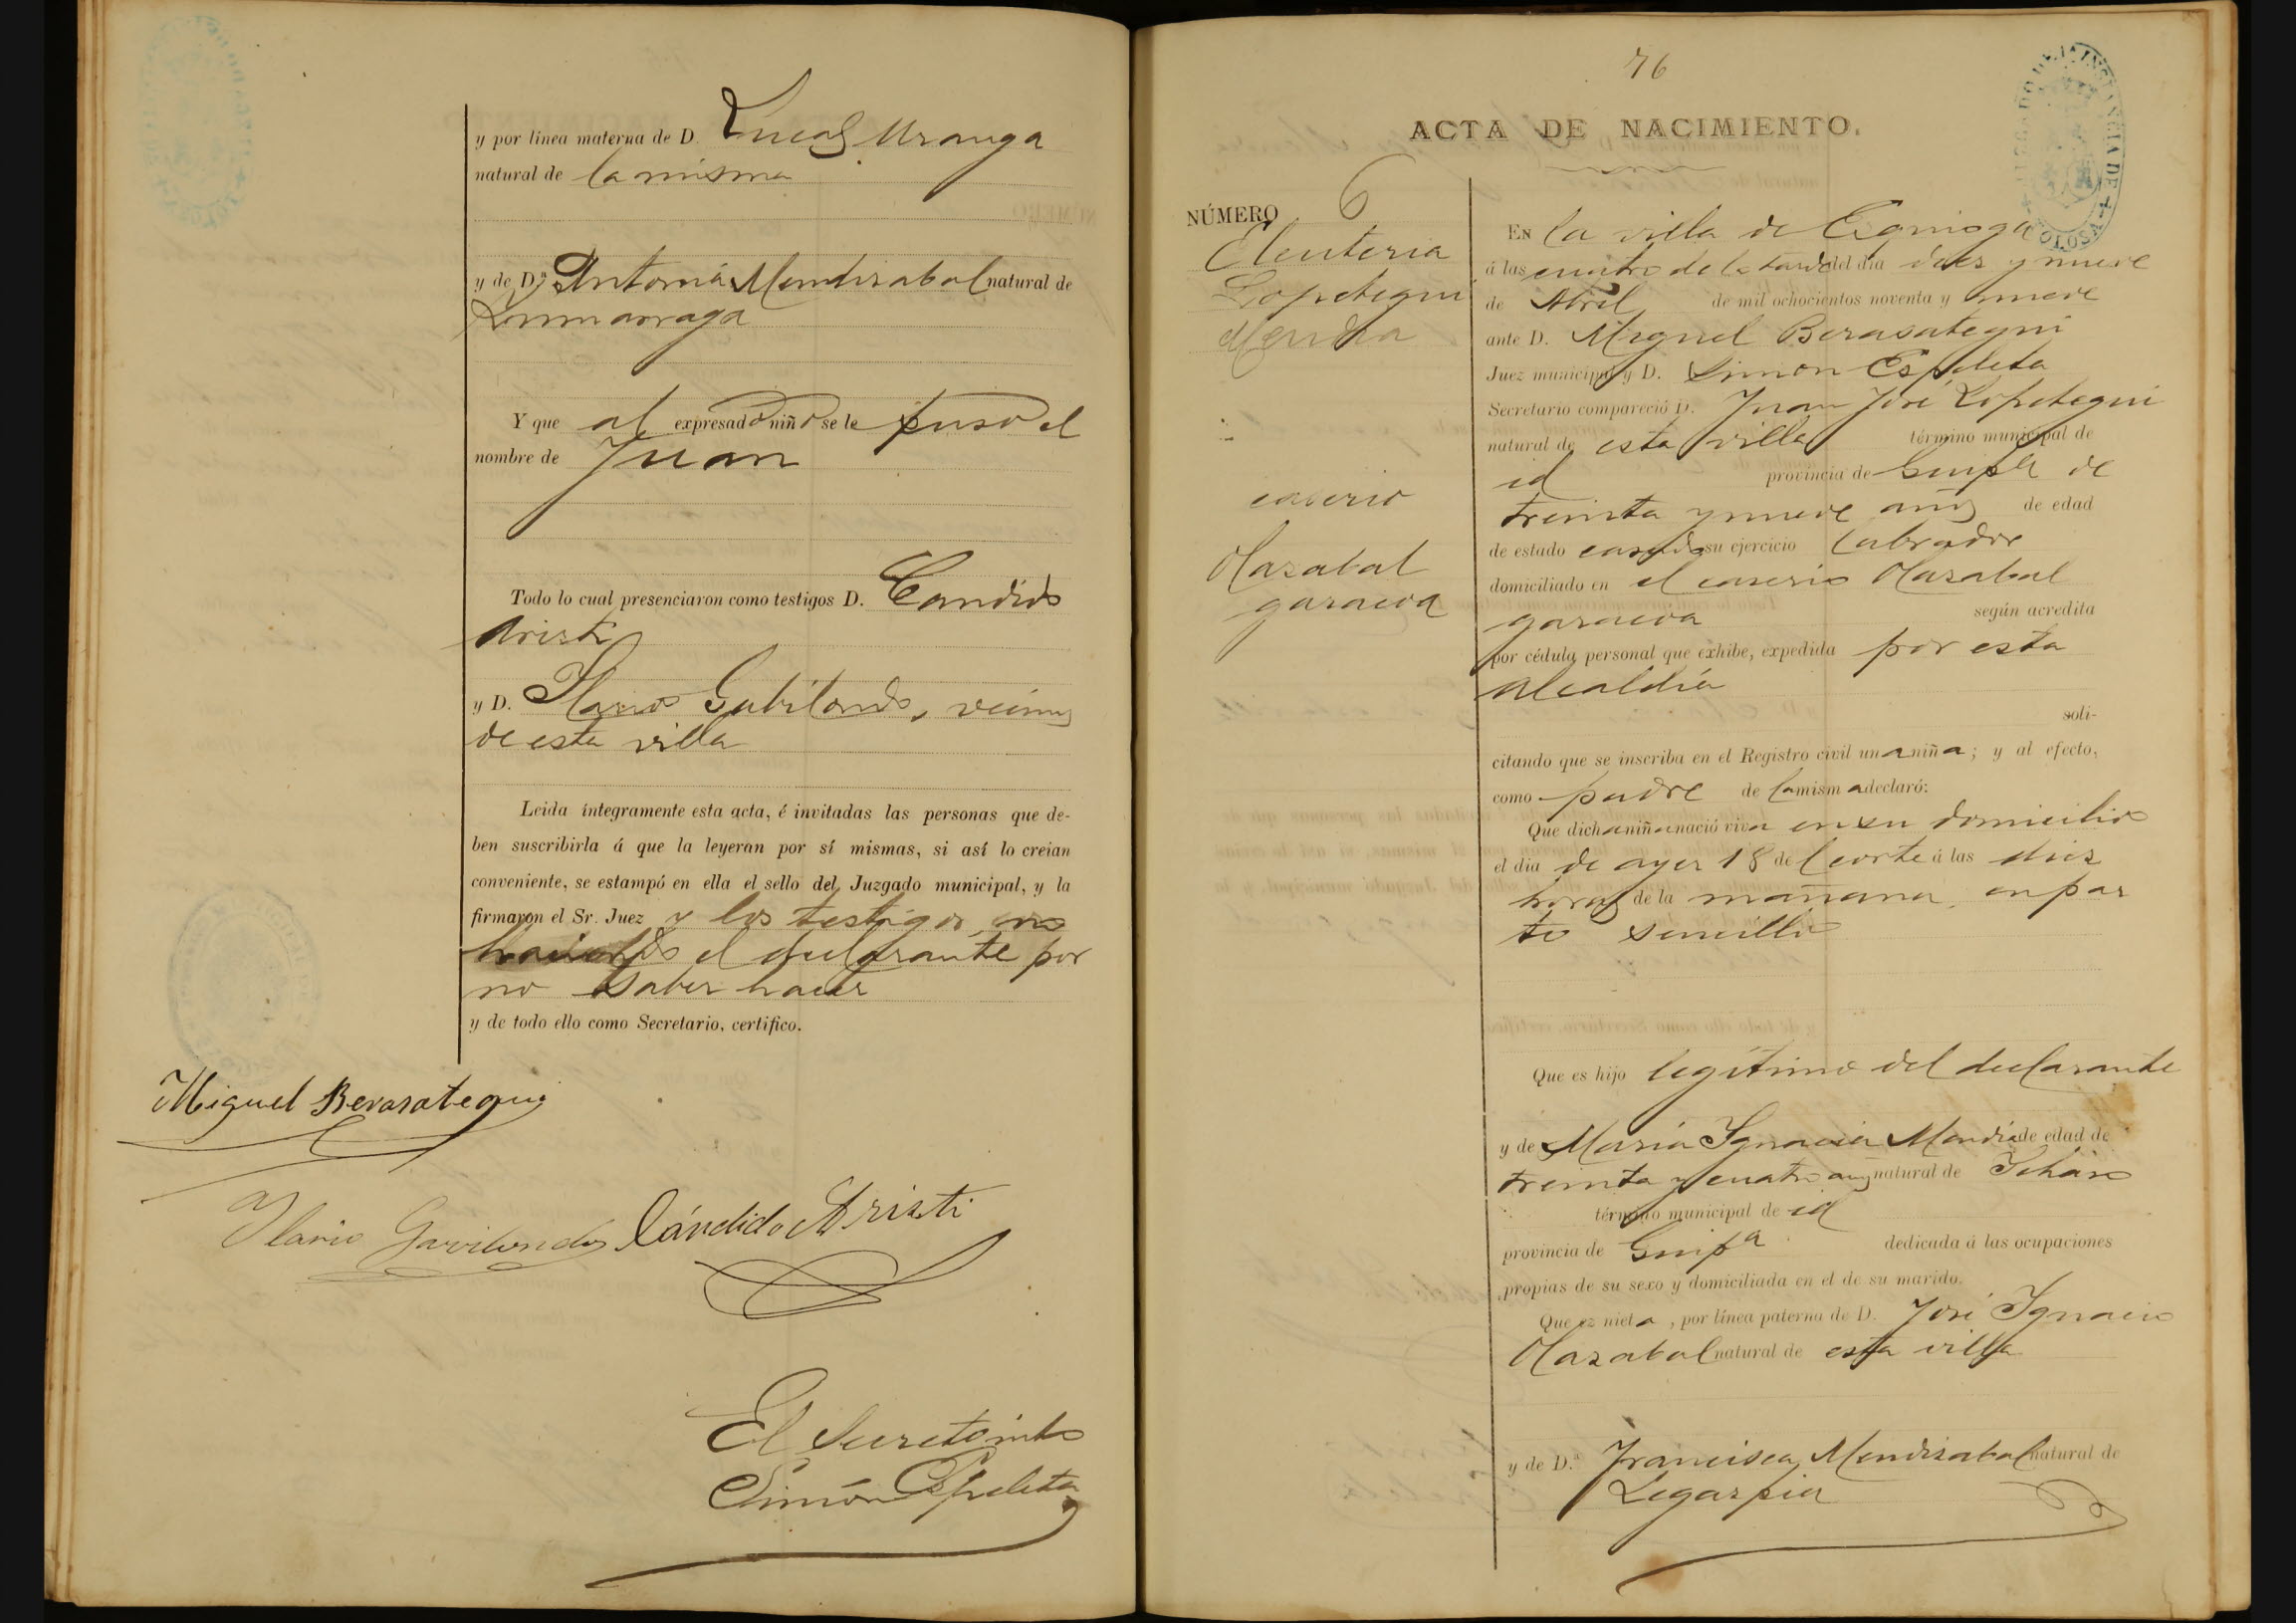 y por línea materna de D. Lucas Uranga
natural de la misma
y de D.ª Antonia Mendizabal natural de
Zumarraga
Y que al expresado niño se le puso el
nombre de Juan
Todo lo cual presenciaron como testigos D. Candido
Aristi
y D. Ilario Gabilondo, vecinos
de esta villa
Leida íntegramente esta acta, é invitadas las personas que de-
ben suscribirla á que la leyeran por sí mismas, si así lo creian
conveniente, se estampó en ella el sello del Juzgado municipal, y la
firmaron el Sr. Juez y los testigos, no
haciendo el declarante por
no saber hacer
y de todo ello como Secretario, certifico.
Miguel Berasategui
Ilario Gavilondo Cándido Aristi
El Secretario
Simón Espeleta
76
ACTA DE NACIMIENTO.
NÚMERO 6
Eleuteria
Lopetegui
Mendia
caserio
Olazabal
garaicoa
EN la villa de Ezquioga
á las cuatro de la tarde del día diez y nueve
de Abril de mil ochocientos noventa y nueve
ante D. Miguel Berasategui
Juez municipal y D. Simon Espeleta
Secretario compareció D. Juan José Lopetegui
natural de esta villa término municipal de
id provincia de Guipª de
treinta y nueve años de edad
de estado casado su ejercicio labrador
domiciliado en el caserio Olazabal
garaicoa según acredita
por cédula personal que exhibe, expedida por esta
Alcaldía
soli-
citando que se inscriba en el Registro civil una niña; y al efecto,
como padre de la misma declaró:
Que dicha niña nació viva en su domicilio
el día de ayer 18 del corte á las diez
horas de la mañana, en par
to sencillo
Que es hijo legítimo del declarante
y de Maria Ignacia Mendia de edad de
treinta y cuatro años natural de Ichaso
término municipal de id
provincia de Guipª dedicada á las ocupaciones
propias de su sexo y domiciliada en el de su marido.
Que es nieta, por línea paterna de D. José Ignacio
Olazabal natural de esta villa
y de D.ª Francisca Mendizabal natural de
Legazpia